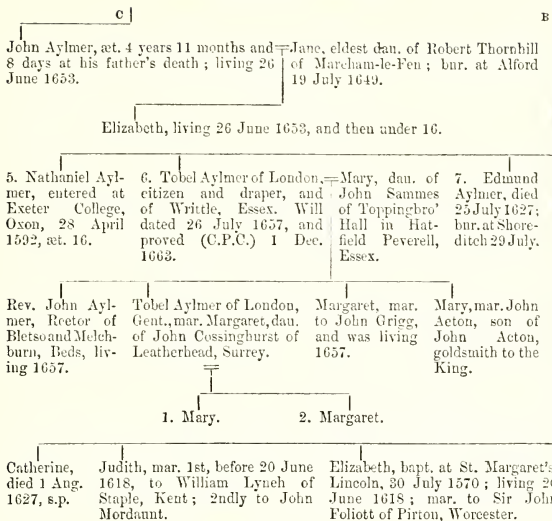 C B
John Aylmer, æt. 4 years 11 months and
8 days at his father's death ; living 26
June 1653.
Jane, eldest dau. of Robert Thornhill
of Marcham-le-Fen ; bur. at Alford
19 July 1649.
Elizabeth, living 26 June 1653, and then under 16.
5. Nathaniel Ayl-
mer, entered at
Exeter College,
Oxon, 28 April
1592, æt. 16.
6. Tobel Aylmer of London,
citizen and draper, and
of Writtle, Essex. Will
dated 26 July 1657, and
proved (C.P.C.) 1 Dec.
1663.
Mary, dau. of
John Sammes
of Toppingbro'
Hall in Hat-
field Peverell,
Essex.
7. Edmund
Aylmer, died
25 July 1627;
bur. at Shore-
ditch 29 July.
Rev. John Ayl-
mer, Rector of
Bletso and Melch-
burn, Beds, liv-
ing 1657.
Tobel Aylmer of London,
Gent., mar. Margaret, dau.
of John Cossinghurst of
Leatherhead, Surrey.
Margaret, mar.
to John Grigg,
and was living
1657.
Mary, mar. John
Acton, son of
John Acton,
goldsmith to the
King.
1. Mary.
2. Margaret.
Catherine,
died 1 Aug.
1627, s.p.
Judith, mar. 1st, before 20 June
1618, to William Lynch of
Staple, Kent ; 2ndly to John
Mordaunt.
Elizabeth, bapt. at St. Margaret's
Lincoln, 30 July 1570 ; living 20
June 1618 ; mar. to Sir John
Foliott of Pirton, Worcester.